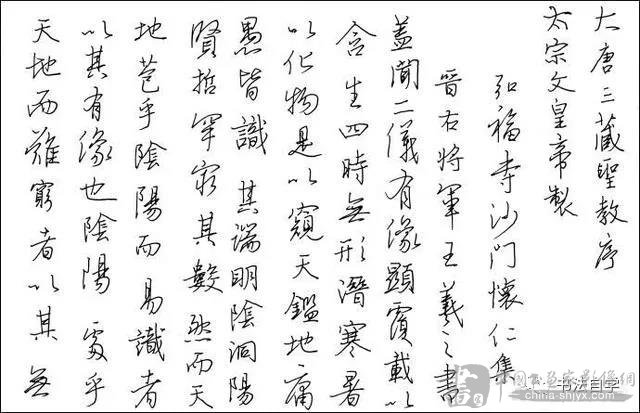 大唐三藏聖教序
太宗文皇帝製
弘福寺沙门懷仁集
晉右將軍王羲之書
蓋聞二儀有像顯覆載以
含生四時無形潛寒暑
以化物是以窺天鑑地庸
愚皆識其端明陰洞陽
賢哲罕窮其數然而天
地苞乎陰陽而易識者
以其有像也陰陽處乎
天地而難窮者以其無
书法自学
www.china-shjyx.com